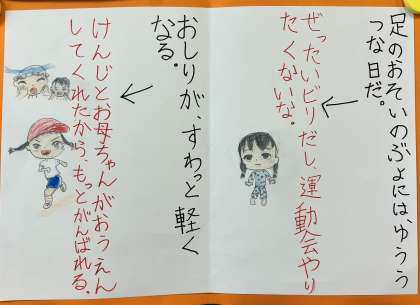 足のおそいのぶよには、ゆううつ
つな日だ。
ぜったいビリだし、運動会やり
たくないな。
おしりが、すわっと軽く
なる。
けんじとお母ちゃんがおうえん
してくれたから、もっとがんばれる。